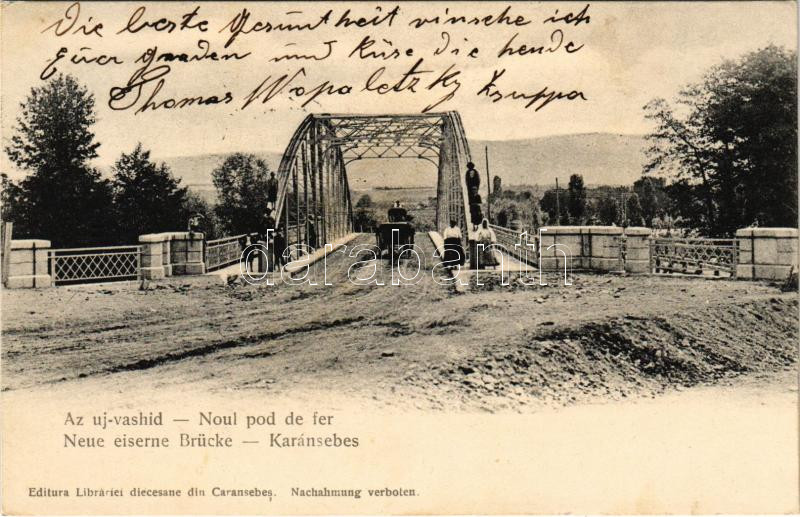 Die beste Gesuntheit vinsche ich
Euer Gnaden und Küse die hende
Thomas Wopaletzky
darabanth
Az uj-vashid — Noul pod de fer
Neue eiserne Brücke — Karánsebes
Editura Librăriei diecesane din Caransebeș. Nachahmung verboten.